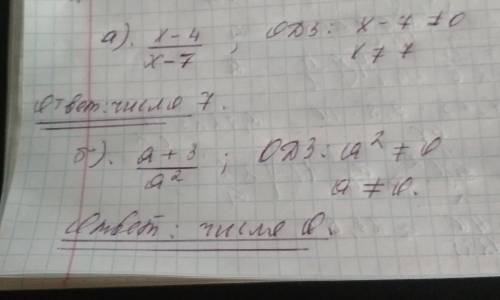 а). x-4/x-7 ; ОДЗ: x-7≠0
x≠7
Ответ: число 7.
б). a+3/a² ; ОДЗ: a²≠0
a≠0.
Ответ: число 0.